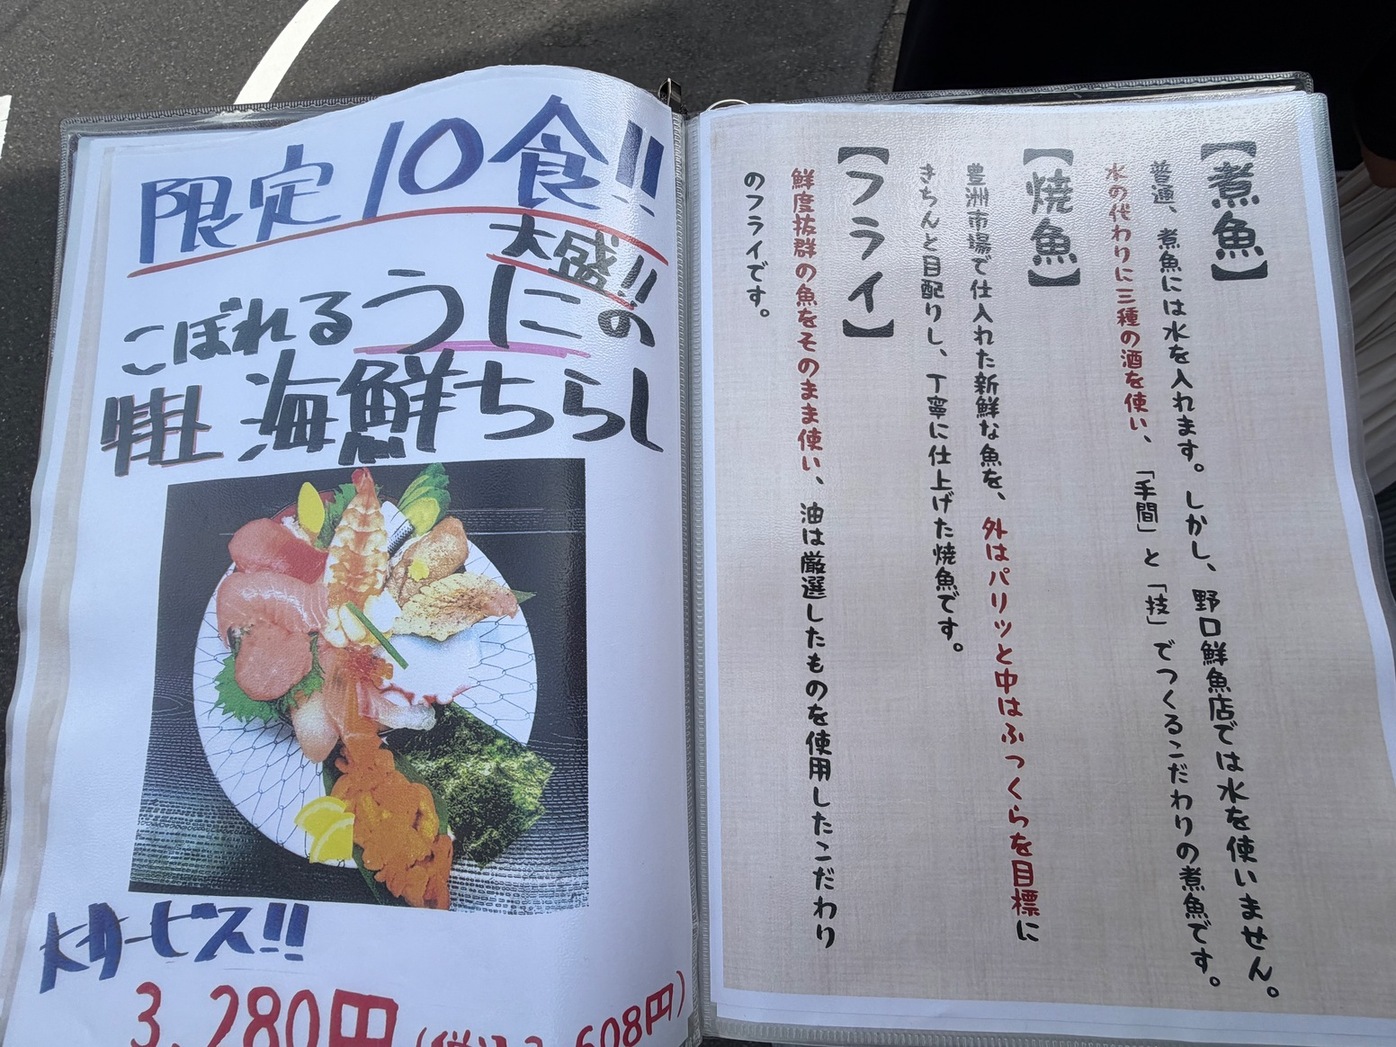 限定10食!!
大盛!!
こぼれるうにの
特上海鮮ちらし
大サービス!!
3,280円(税込3,608円)
【煮魚】
普通、煮魚には水を入れます。しかし、野口鮮魚店では水を使いません。
水の代わりに三種の酒を使い、「手間」と「技」でつくるこだわりの煮魚です。
【焼魚】
豊洲市場で仕入れた新鮮な魚を、外はパリッと中はふっくらを目標に
きちんと目配りし、丁寧に仕上げた焼魚です。
【フライ】
鮮度抜群の魚をそのまま使い、油は厳選したものを使用したこだわり
のフライです。